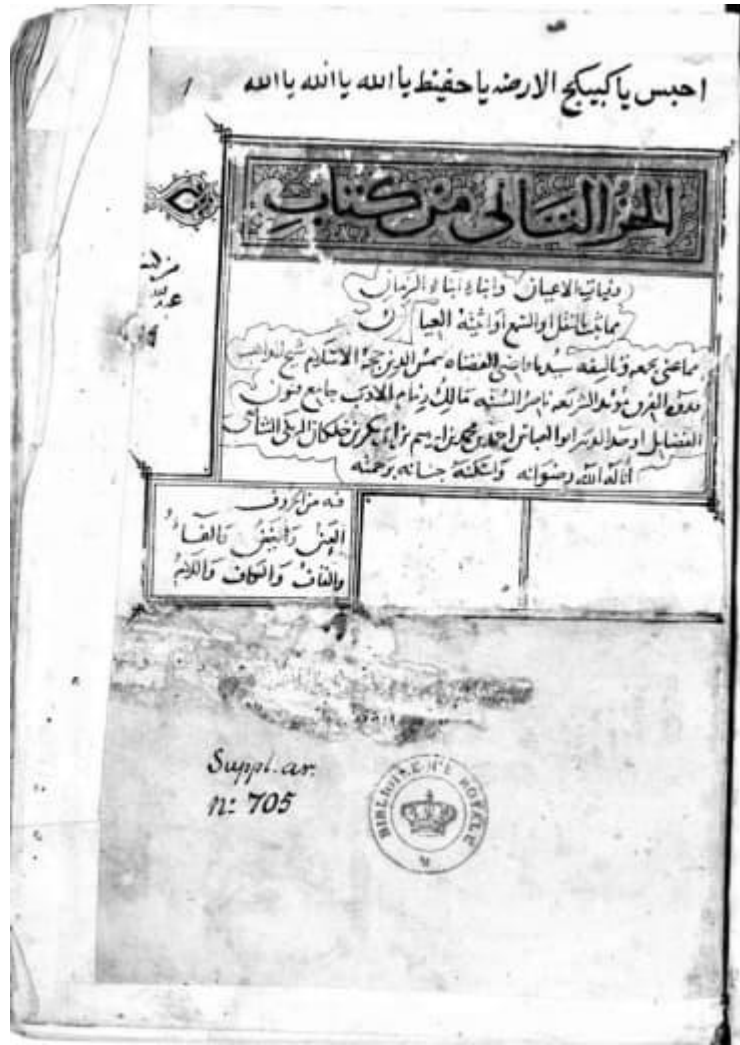 احبس يا كبيكج الارضه يا حفيظ يا الله يا الله يا الله
1
الجزء الثاني من كتاب
وفيات الاعيان وانباء ابناء الزمان
مما ثبت بالنقل او السماع او اثبته العيان
مما عنى بجمعه وتاليفه سيدنا قاضى القضاه شمس الدين حجة الاسلام شيخ المذاهب
الفرق مؤيد الشريعه ناصر السنه مالك زمام الادب جامع فنون
الفضايل ابو العباس احمد بن محمد بن ابرهيم بن ابى بكر بن خلكان الشافعى
اناله الله رضوانه واسكنه جنانه برحمته
فيه من الحروف
العين والغين والفاء
والقاف والكاف واللام
Suppl. ar.
n: 705
BIBLIOTHE ROYALE